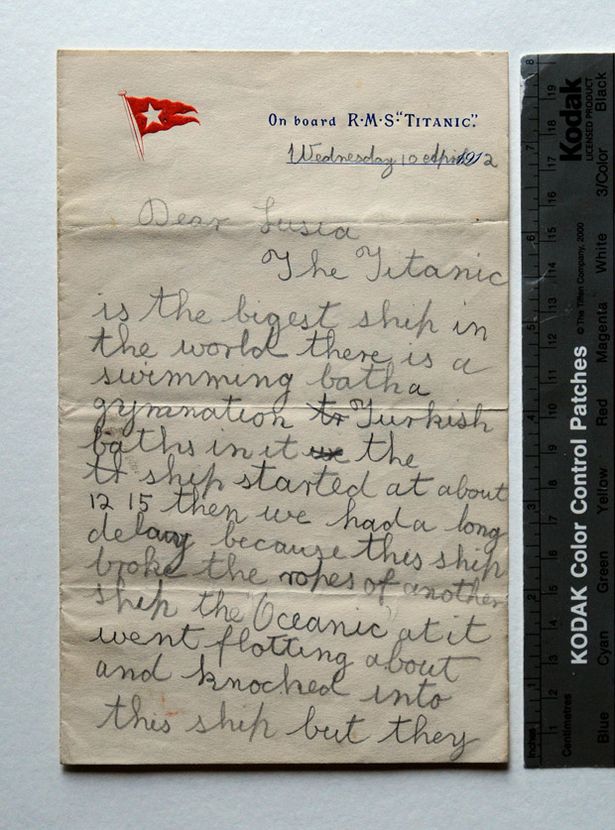 On board R·M·S·"TITANIC".
Wednesday 10 April 1912
Dear Lusia
The Titanic
is the bigest ship in
the world there is a
swimming bath a
gymnation tr Turkish
baths in it the
tr ship started at about
12 15 then we had a long
delay because this ship
broke the ropes of another
ship the "Oceanic" at it
went flotting about
and knocked into
this ship but they
8
19
18
17
16
15
14
13
12
11
10
9
8
7
6
5
4
3
2
1
7
6
5
4
3
2
1
Inches
Centimetres
KODAK Color Control Patches
© The Tiffen Company, 2000
Kodak
LICENSED PRODUCT
Blue
Cyan
Green
Yellow
Red
Magenta
White
3/Color
Black